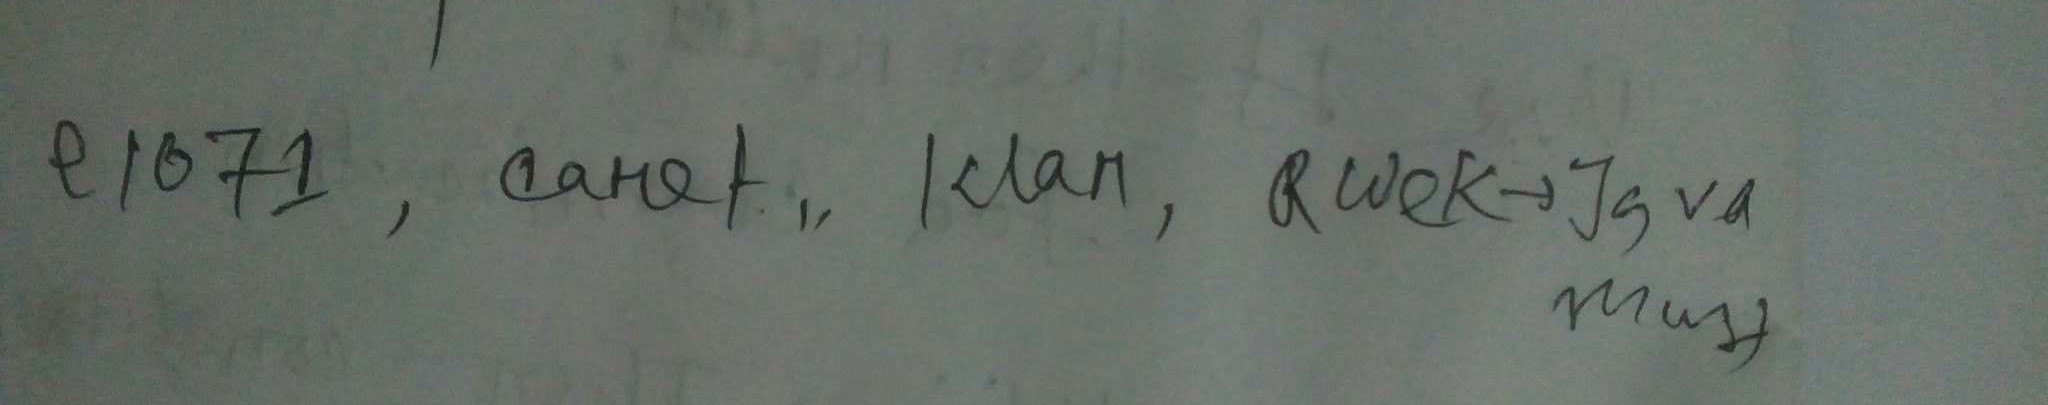 e1071, caret,, klaR, RWeka → Java
must